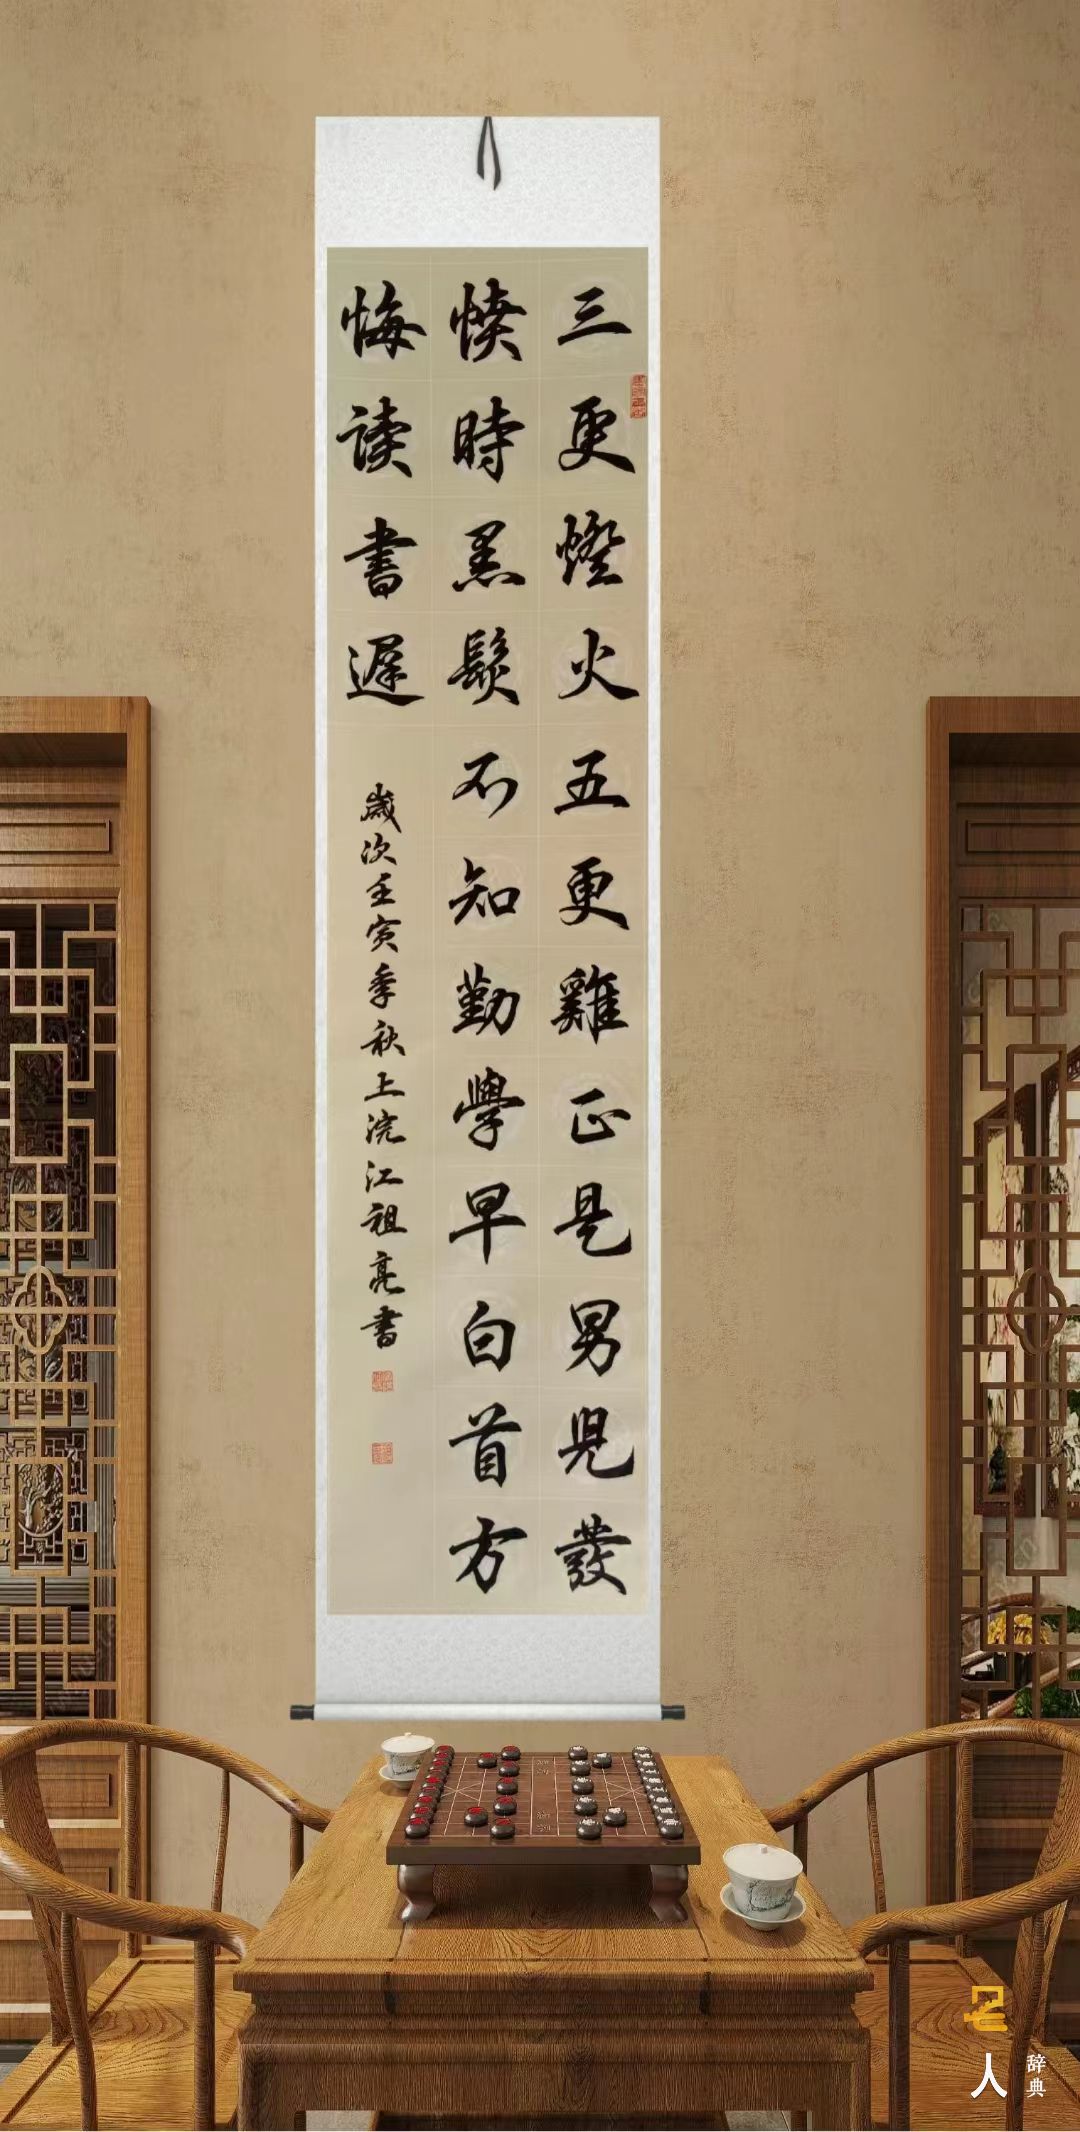 三更燈火五更雞正是男兒發
憤時黑髮不知勤學早白首方
悔读書遲
歲次壬寅季秋上浣江祖亮書
名人辞典